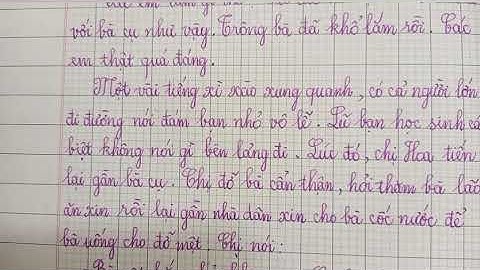 với bà cụ như vậy. Trông bà đã khổ lắm rồi. Các
em thật quá đáng.
Một vài tiếng xì xào xung quanh, có cả người lớn
đi đường nói đám bạn nhỏ vô lễ. Lũ bạn học sinh cá
biệt không nói gì bèn lảng đi. Lúc đó, chị Hoa tiến
lại gần bà cụ. Chị đỡ bà cẩn thận, hỏi thăm bà lão
ăn xin rồi lại gần nhà dân xin cho bà cốc nước để
bà uống cho đỡ mệt. Chị nói: